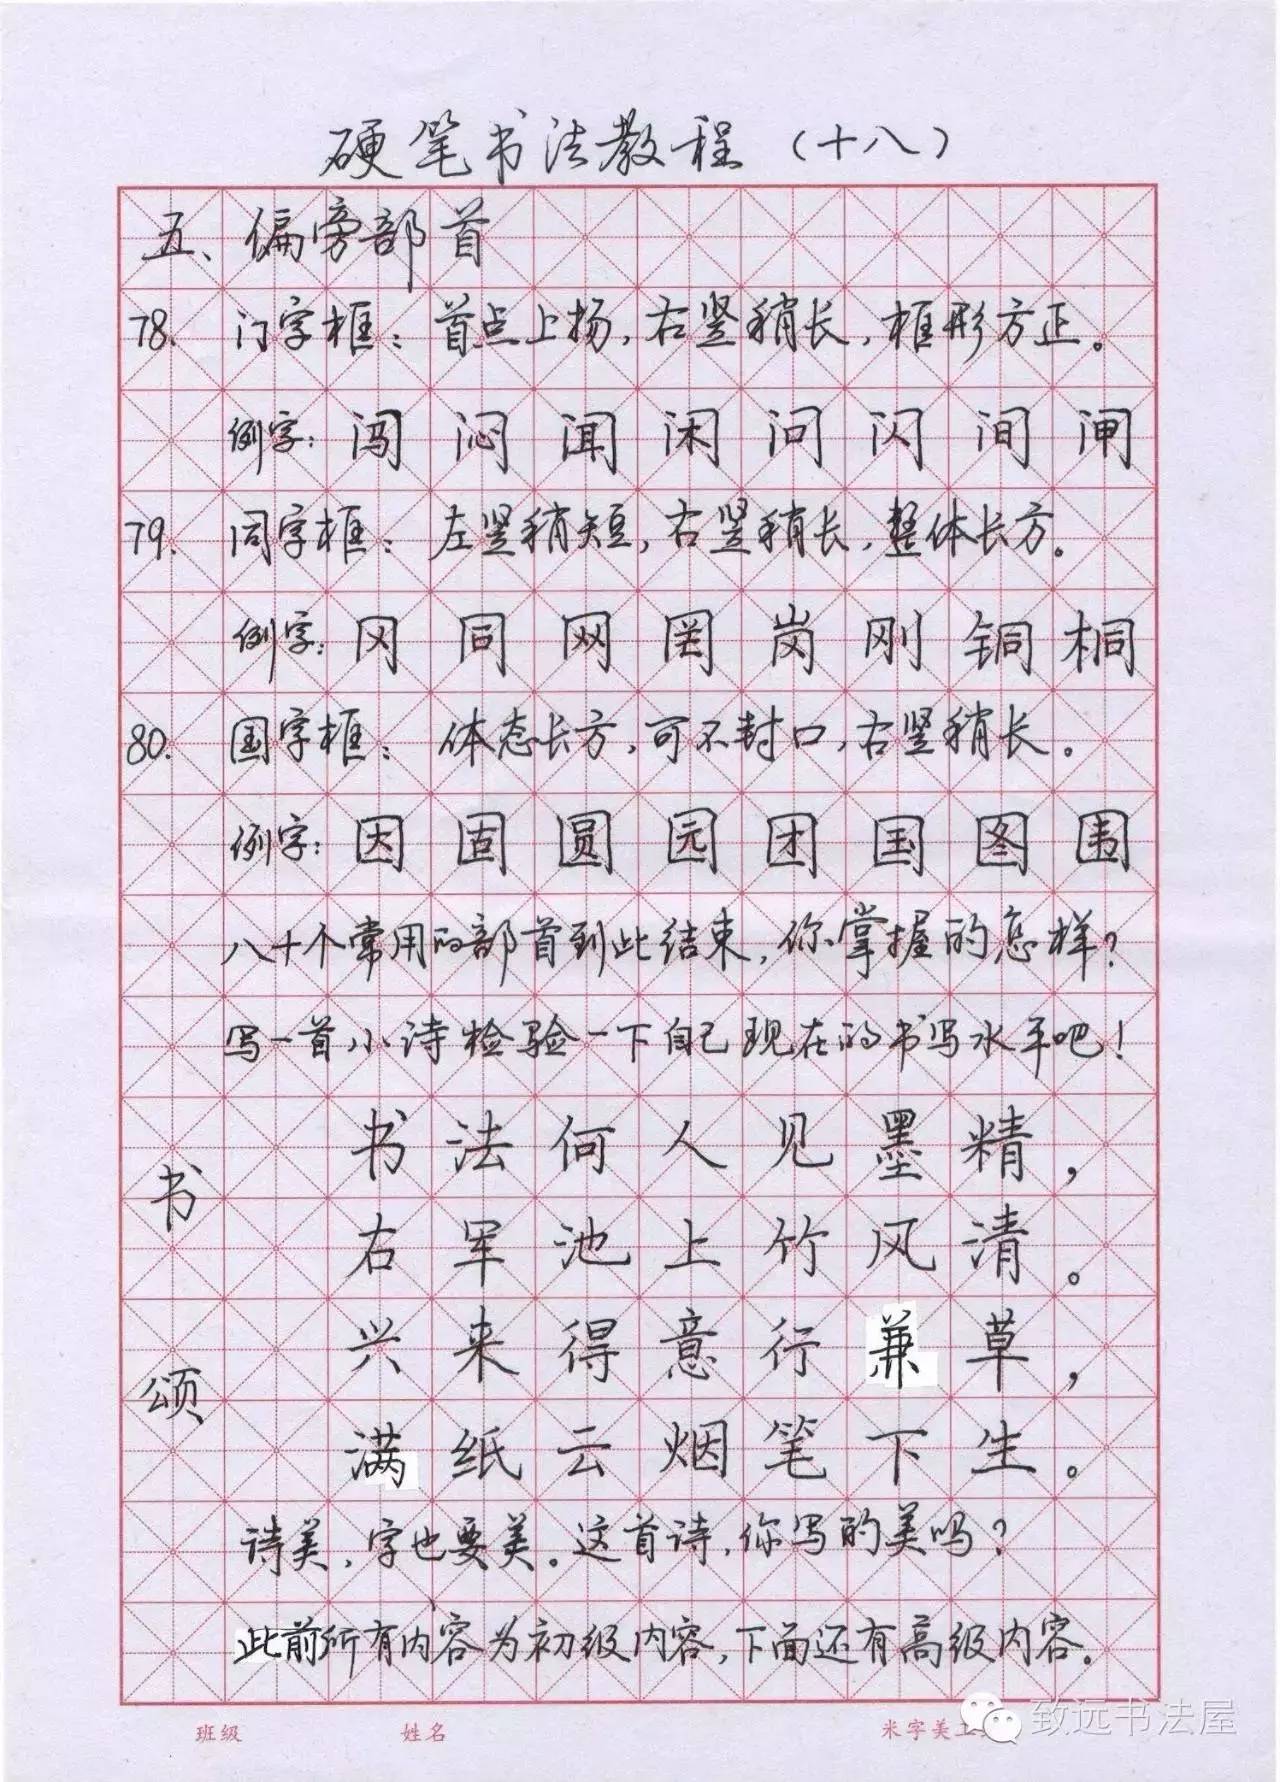 硬笔书法教程（十八）
五、偏旁部首
78. 门字框：首点上扬，右竖稍长，框形方正。
例字：闯 闷 闻 闲 问 闪 间 闸
79. 同字框：左竖稍短，右竖稍长，整体长方。
例字：冈 同 网 罔 岗 刚 铜 桐
80. 国字框：体态长方，可不封口，右竖稍长。
例字：因 固 圆 园 团 国 图 围
八十个常用的部首到此结束，你掌握的怎样？
写一首小诗检验一下自己现在的书写水平吧！
书颂
书法何人见墨精，
右军池上竹风清。
兴来得意行兼草，
满纸云烟笔下生。
诗美，字也要美。这首诗，你写的美吗？
此前所有内容为初级内容，下面还有高级内容。
班级 姓名 米字美工
致远书法屋